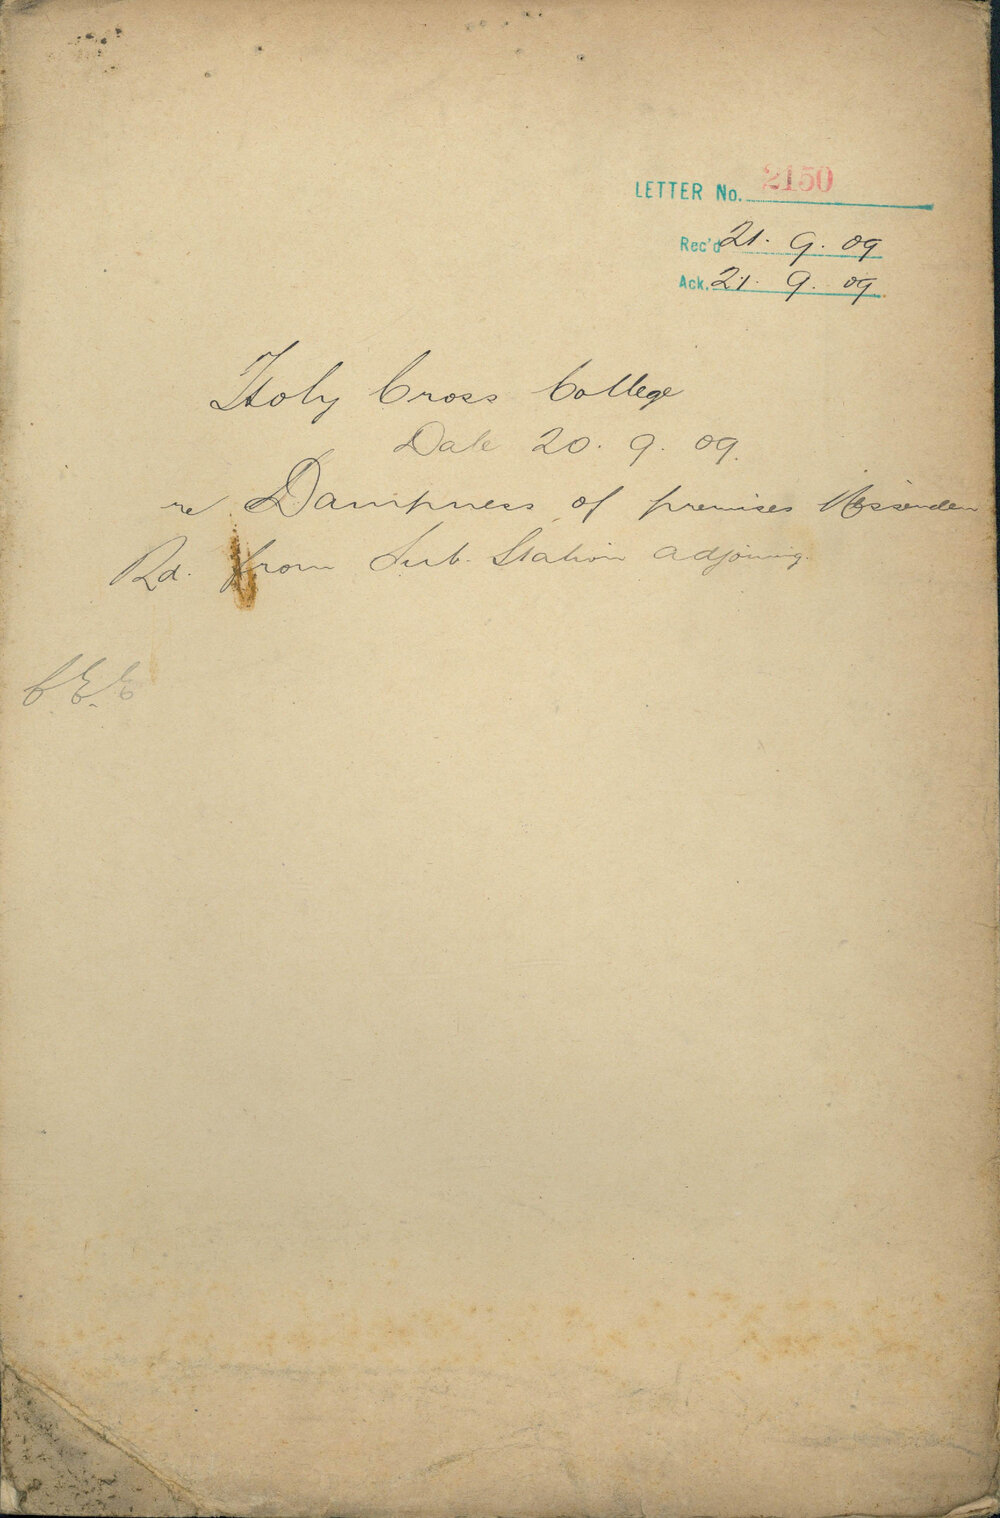 LETTER No. 2150
Rec'd 21. 9. 09
Ack. 21. 9. 09
Holy Cross College
Date 20. 9. 09.
re Dampness of premises Messenden
Rd. from Sub. Station adjoining.
C.E.E